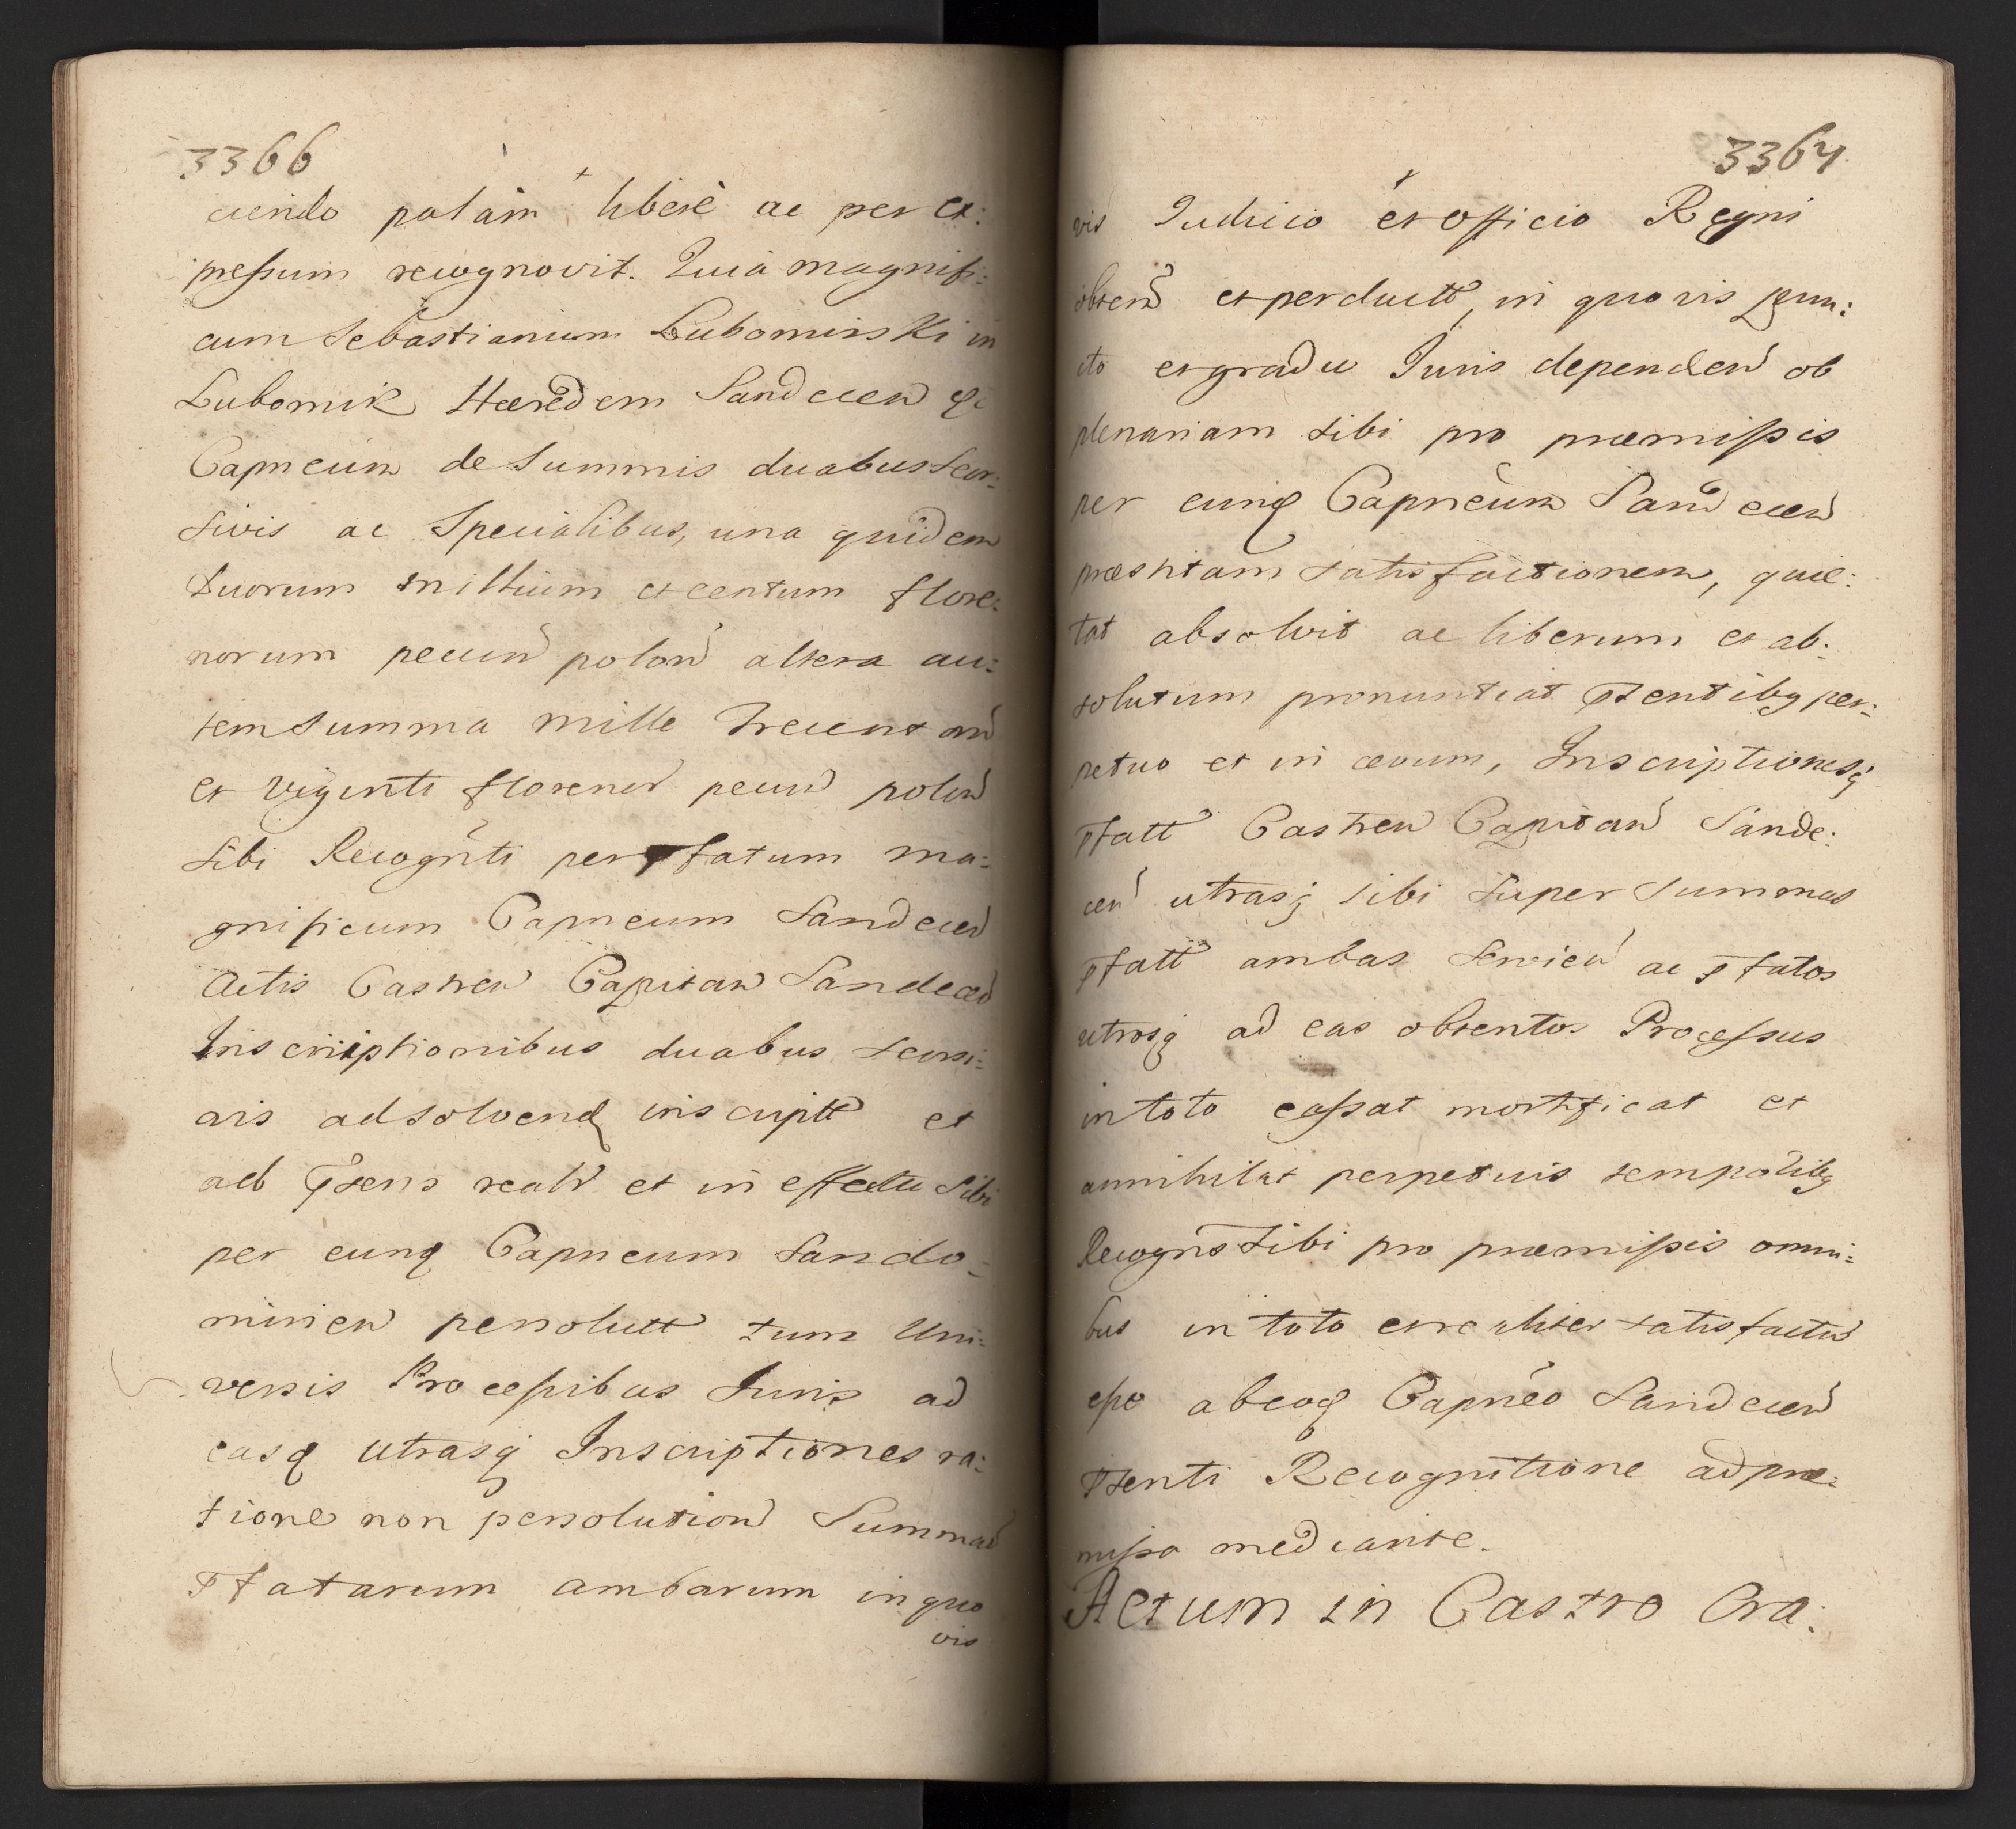 3366
ciendo palàm liberè ac per ex:
pressum recognovit. Quia magnifi:
cum Sebastianum Lubomirski in
Lubomir Hæredem Sandecen
Capneum de Summis duabus seor:
sivis ac Specialibus, una quidem
Duorum millium et centum flore:
norum pecun polon altera au:
tem summa mille Trecent
et viginti floren pecun polon
sibi Recognti per pfatum ma:
gnificum Capneum Sandecen
Actis Castren Capitan Sandecen
Inscriptionibus duabus seorsi:
vis adsolvend inscriptt et
ad psens realr et in effectu sibi
per eunq Capneum Sando:
mirien persolutt tum Uni:
versis Processibus Iuris ad
easq utrasq Inscriptiones ra:
tione non persolution Summar
pfatarum ambarum in quo
vis
3367
vis Iudicio et officio Regni
obten et perductt, in quovis pun:
cto et gradu Iuris dependen ob
plenariam sibi pro præmissis
per eunq Capneum Sandecen
præstitam satisfactionem, quie:
tat absolvit ac liberum et ab:
solutum pronuntiat psentibq per:
petuo et in ævum, Inscriptionesq
pfatt Castren Capitan Sande:
cen utrasq sibi super summas
pfatt ambas servien ac pfatos
utrosq ad eas obtentos Processus
in toto cassat mortificat et
annihilat perpetuis temporibq
Recogns sibi pro præmissis omni:
bus in toto et realiter satisfactu
esse ab eoq Capneo Sandecen
psenti Recognitione ad præ:
missa mediante.
Actum in Castro Cra: